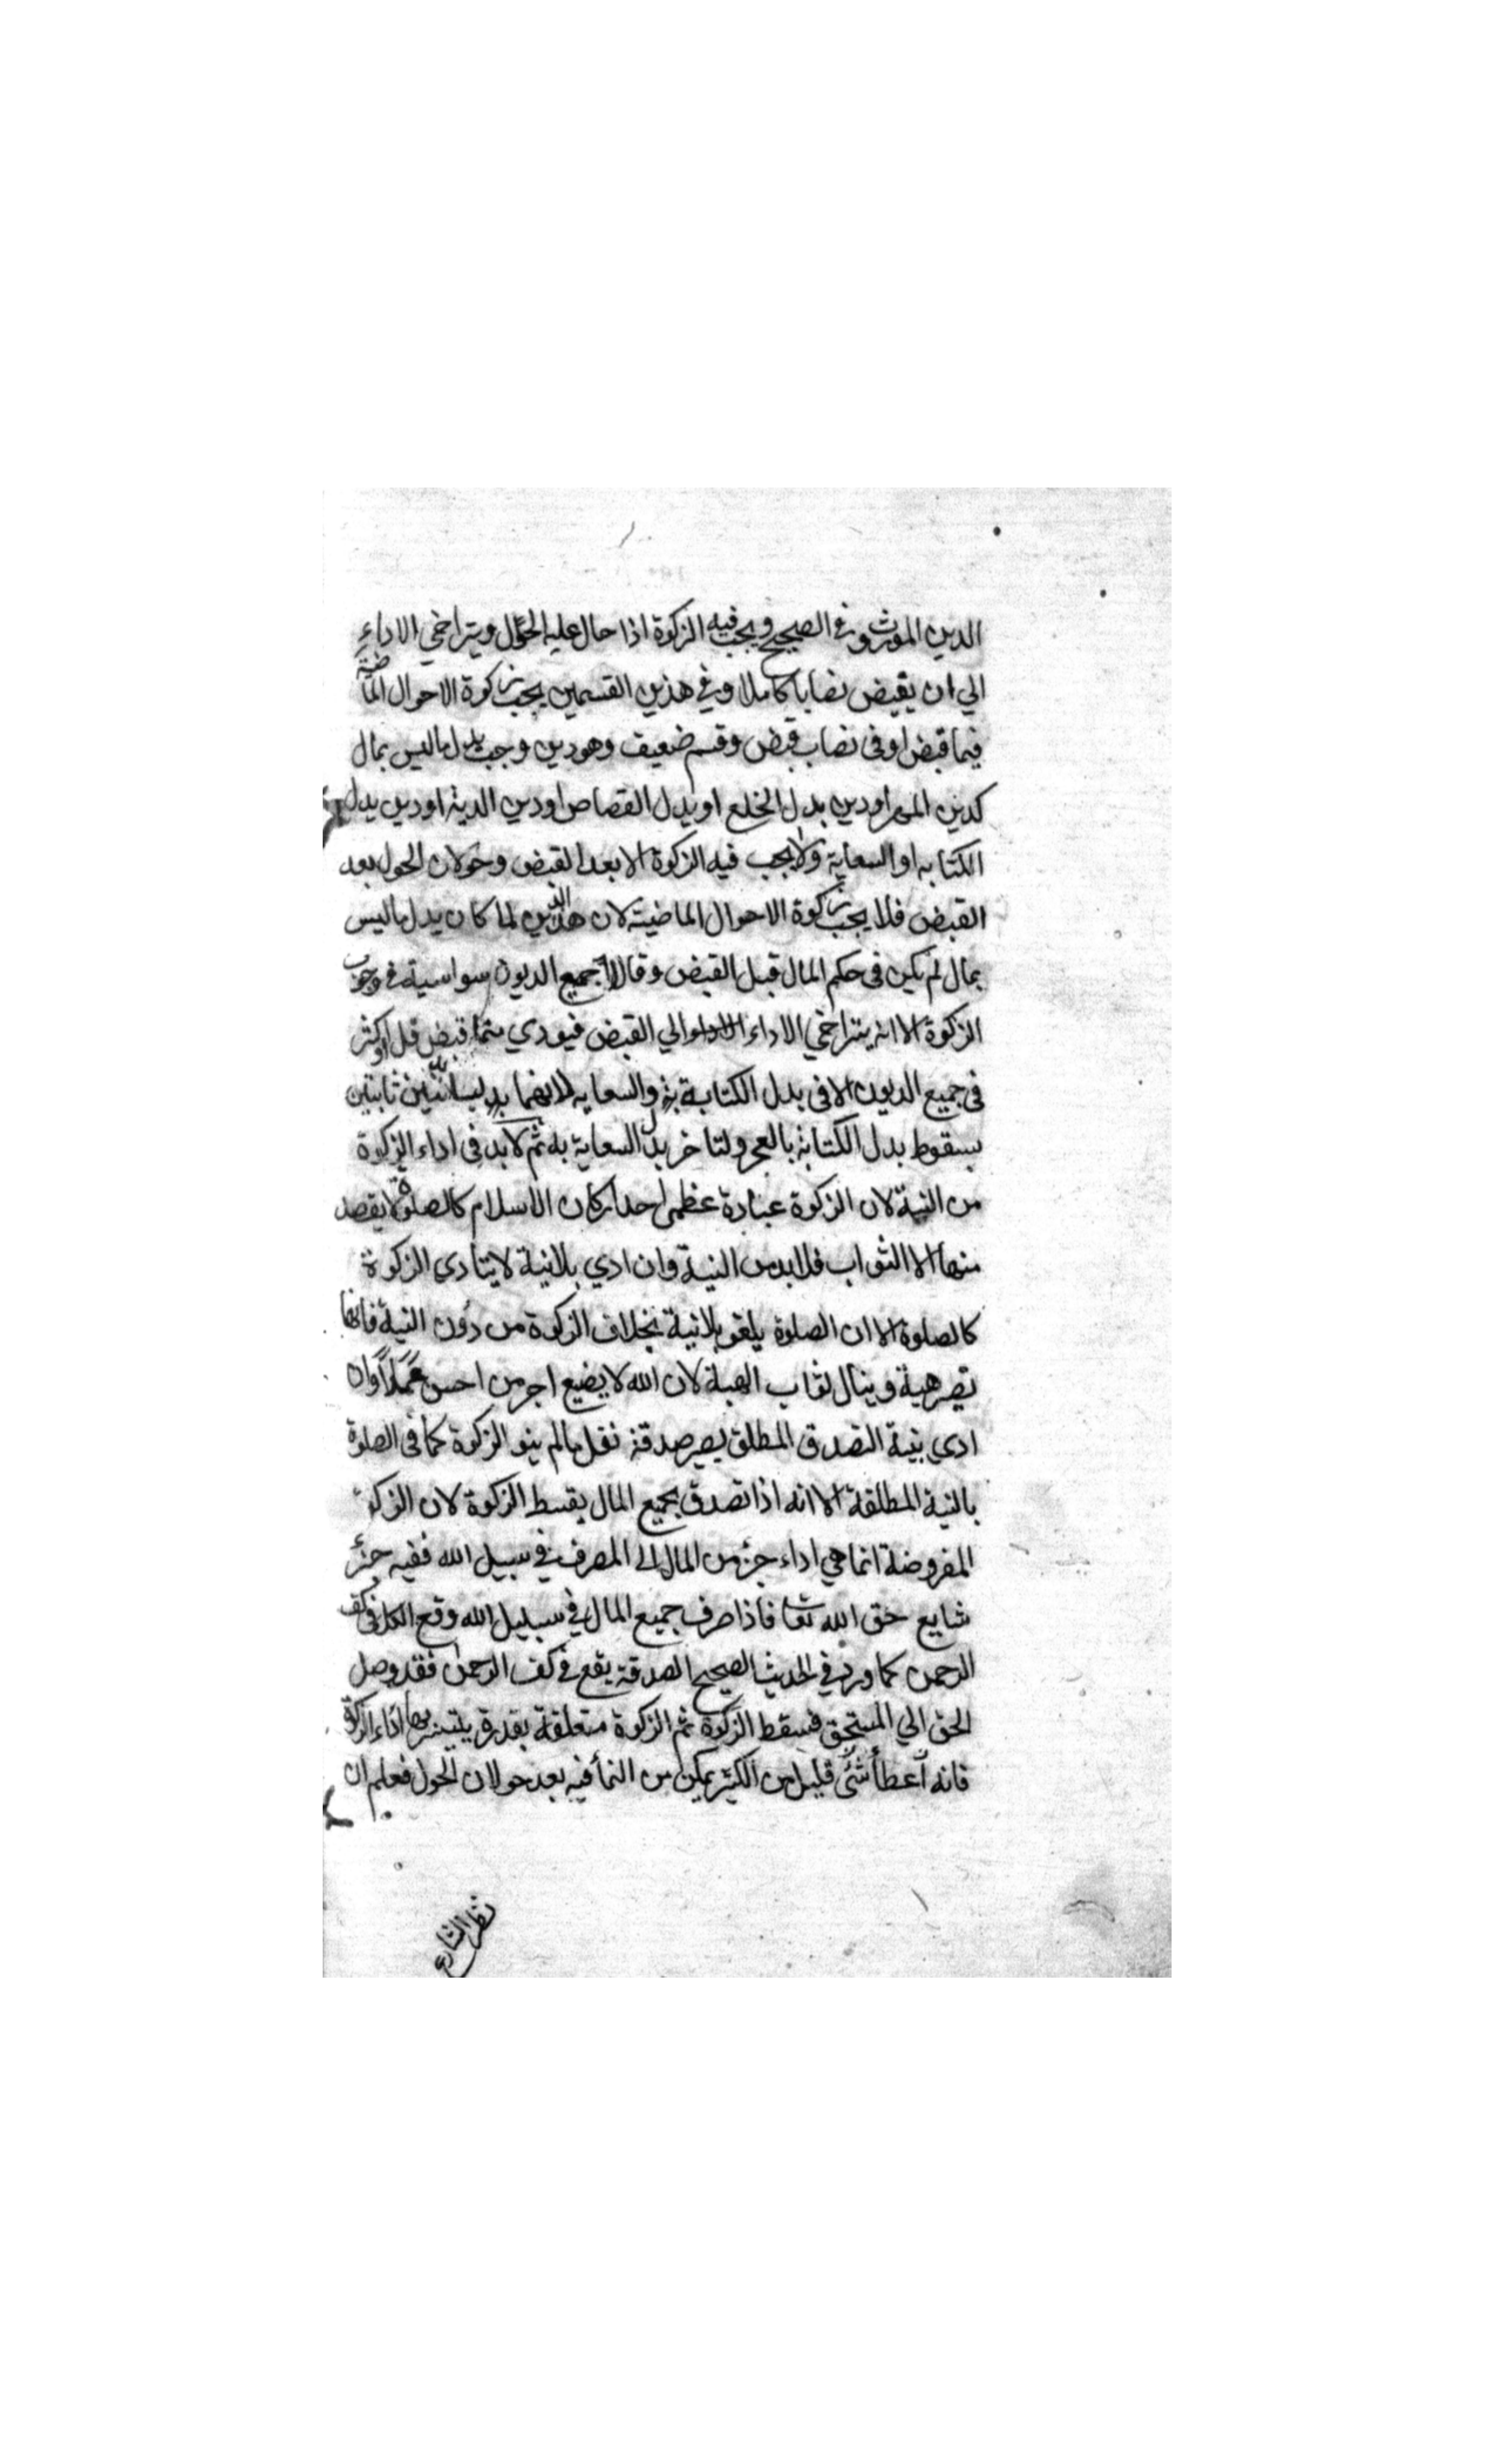 الدين الموروث في الصحيح ويجب فيه الزكوة اذا حال عليه الحول ويتراخي الاداء
الي ان يقبض نصابا كاملا وفي هذين القسمين يجب زكوة الاحوال الماضية
فيما قبض اوفى نصاب قبض وقسم ضعيف وهو دين وجب بدل ماليس بمال
كدين المهر اودين بدل الخلع او بدل القصاص اودين الدية اودين بدل
الكتابه او السعاية ولا يجب فيه الزكوة الا بعد القبض وحولان الحول بعد
القبض فلا يجب زكوة الاحوال الماضية لان هذا الدين لما كان بدل ماليس
بمال لم يكن فى حكم المال قبل القبض وقالا جميع الديون سواسية في وجوب
الزكوة الا انه يتراخي الاداء الي القبض فيودي مما قبض قل اوكثر
فى جميع الديون الا فى بدل الكتابة والسعايه لانهما ليسا بدينين ثابتين
بسقوط بدل الكتابة بالعجز ولتاخر بدل السعاية به ثم لابد فى اداء الزكوة
من النية لان الزكوة عبادة عظمى احد اركان الاسلام كالصلوة لا يقصد
منها الا الثواب فلا بد من النية وان ادي بلا نية لا يتادي الزكوة
كالصلوة الا ان الصلوة يلغو بلا نية بخلاف الزكوة من دون النية فانها
تصير هبة وينال ثواب الهبة لان الله لا يضيع اجر من احسن عملا وان
ادي بنية التصدق المطلق يصير صدقة نفل مالم ينو الزكوة كما فى الصلوة
بالنية المطلقة الا انه اذا تصدق بجميع المال يقسط الزكوة لان الزكوة
المفروضة انما هي اداء جزء من المال الى المصرف في سبيل الله ففيه جزء
شايع حق الله تعا فاذا صرف جميع المال في سبيل الله وقع الكل فى كف
الرحمن كما ورد في الحديث الصحيح الصدقة يقع في كف الرحمن فقد وصل
الحق الي المستحق فسقط الزكوة ثم الزكوة متعلقة بقدرة يتيسر بها اداء الزكوة
فانه اعطأ شئ قليل من الكثير يمكن من النمأ فيه بعد حولان الحول فعلم ان
نظر الشارع